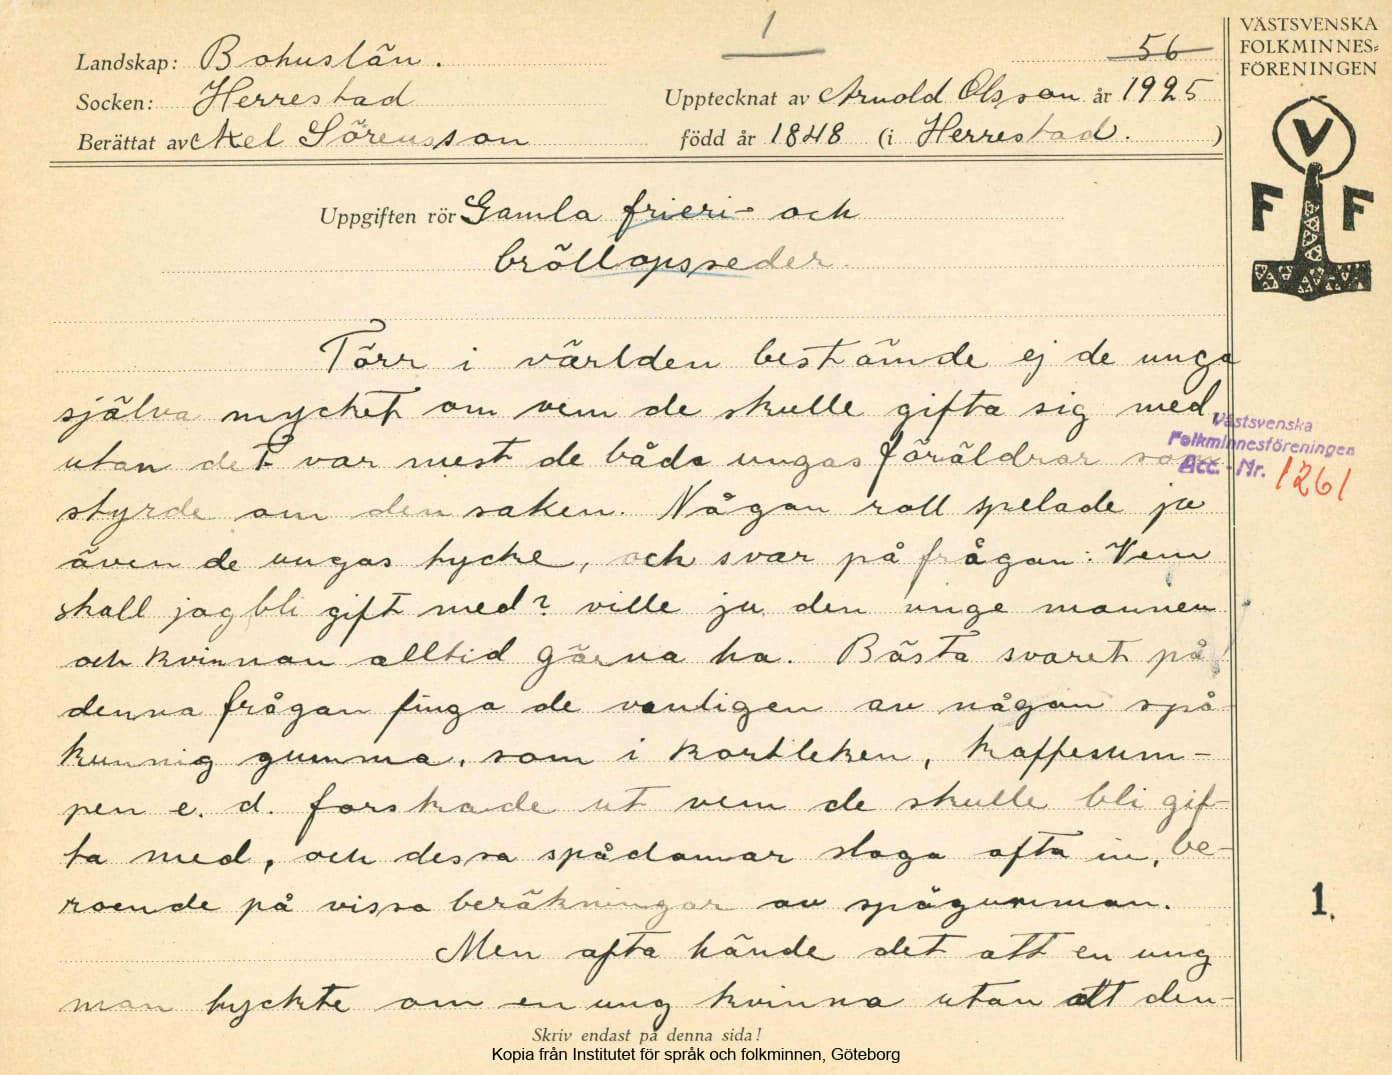 1
56
VÄSTSVENSKA
FOLKMINNES=
FÖRENINGEN
Landskap: Bohuslän.
Socken: Herrestad
Upptecknat av Arnold Olsson år 1925
Berättat av Axel Sörensson
född år 1848 (i Herrestad. )
V
F F
Uppgiften rör Gamla frieri- och
bröllopsseder.
Förr i världen bestämde ej de unga
själva mycket om vem de skulle gifta sig med,
utan det var mest de båda ungas föräldrar som
styrde om den saken. Någon roll spelade ju
även de ungas tycke, och svar på frågan: Vem
skall jag bli gift med? ville ju den unge mannen
och kvinnan alltid gärna ha. Bästa svaret på
denna frågan finga de vanligen av någon spå-
kunnig gumma, som i kortleken, kaffesum-
pen e. d. forskade ut vem de skulle bli gif-
ta med, och dessa spådomar sloga ofta in, be-
roende på vissa beräkningar av spågumman.
Men ofta hände det att en ung
man tyckte om en ung kvinna utan att den-
Västsvenska
Folkminnesföreningen
Acc. - Nr. 1261
1.
Skriv endast på denna sida!
Kopia från Institutet för språk och folkminnen, Göteborg